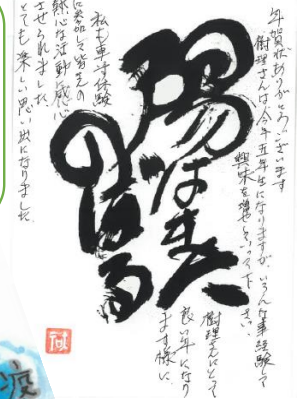 年賀状ありがとうございます
樹理さんは今年五年生になりますが、いろんな事経験して
興味を増やしていって下さい。
樹理さんにとって
良い年になり
ます様に、
陽はまた
のぼる
私も車イス体験
に参加して皆さんの
熱心な活動感心
させられました
とても楽しい思い出になりました